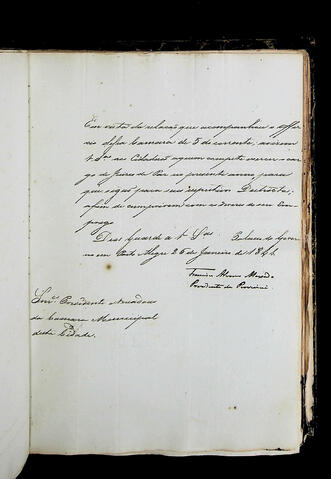 Em vista da relação que acompanhou o offi-
cio dessa Camara de 5 do corrente,
os Cidadãos a quem compete exercer o car-
go de Juizes de Paz no presente anno, para
que sigão para seus respectivos Destrictos,
afim de cumprirem com os deveres de seu Em-
prego.
Deos Guarde a Palacio do Gover-
no em Porto Alegre 26 de Janeiro de 184
Presidente da Provincia
Presidente
da Camara Municipal
desta Cidade.